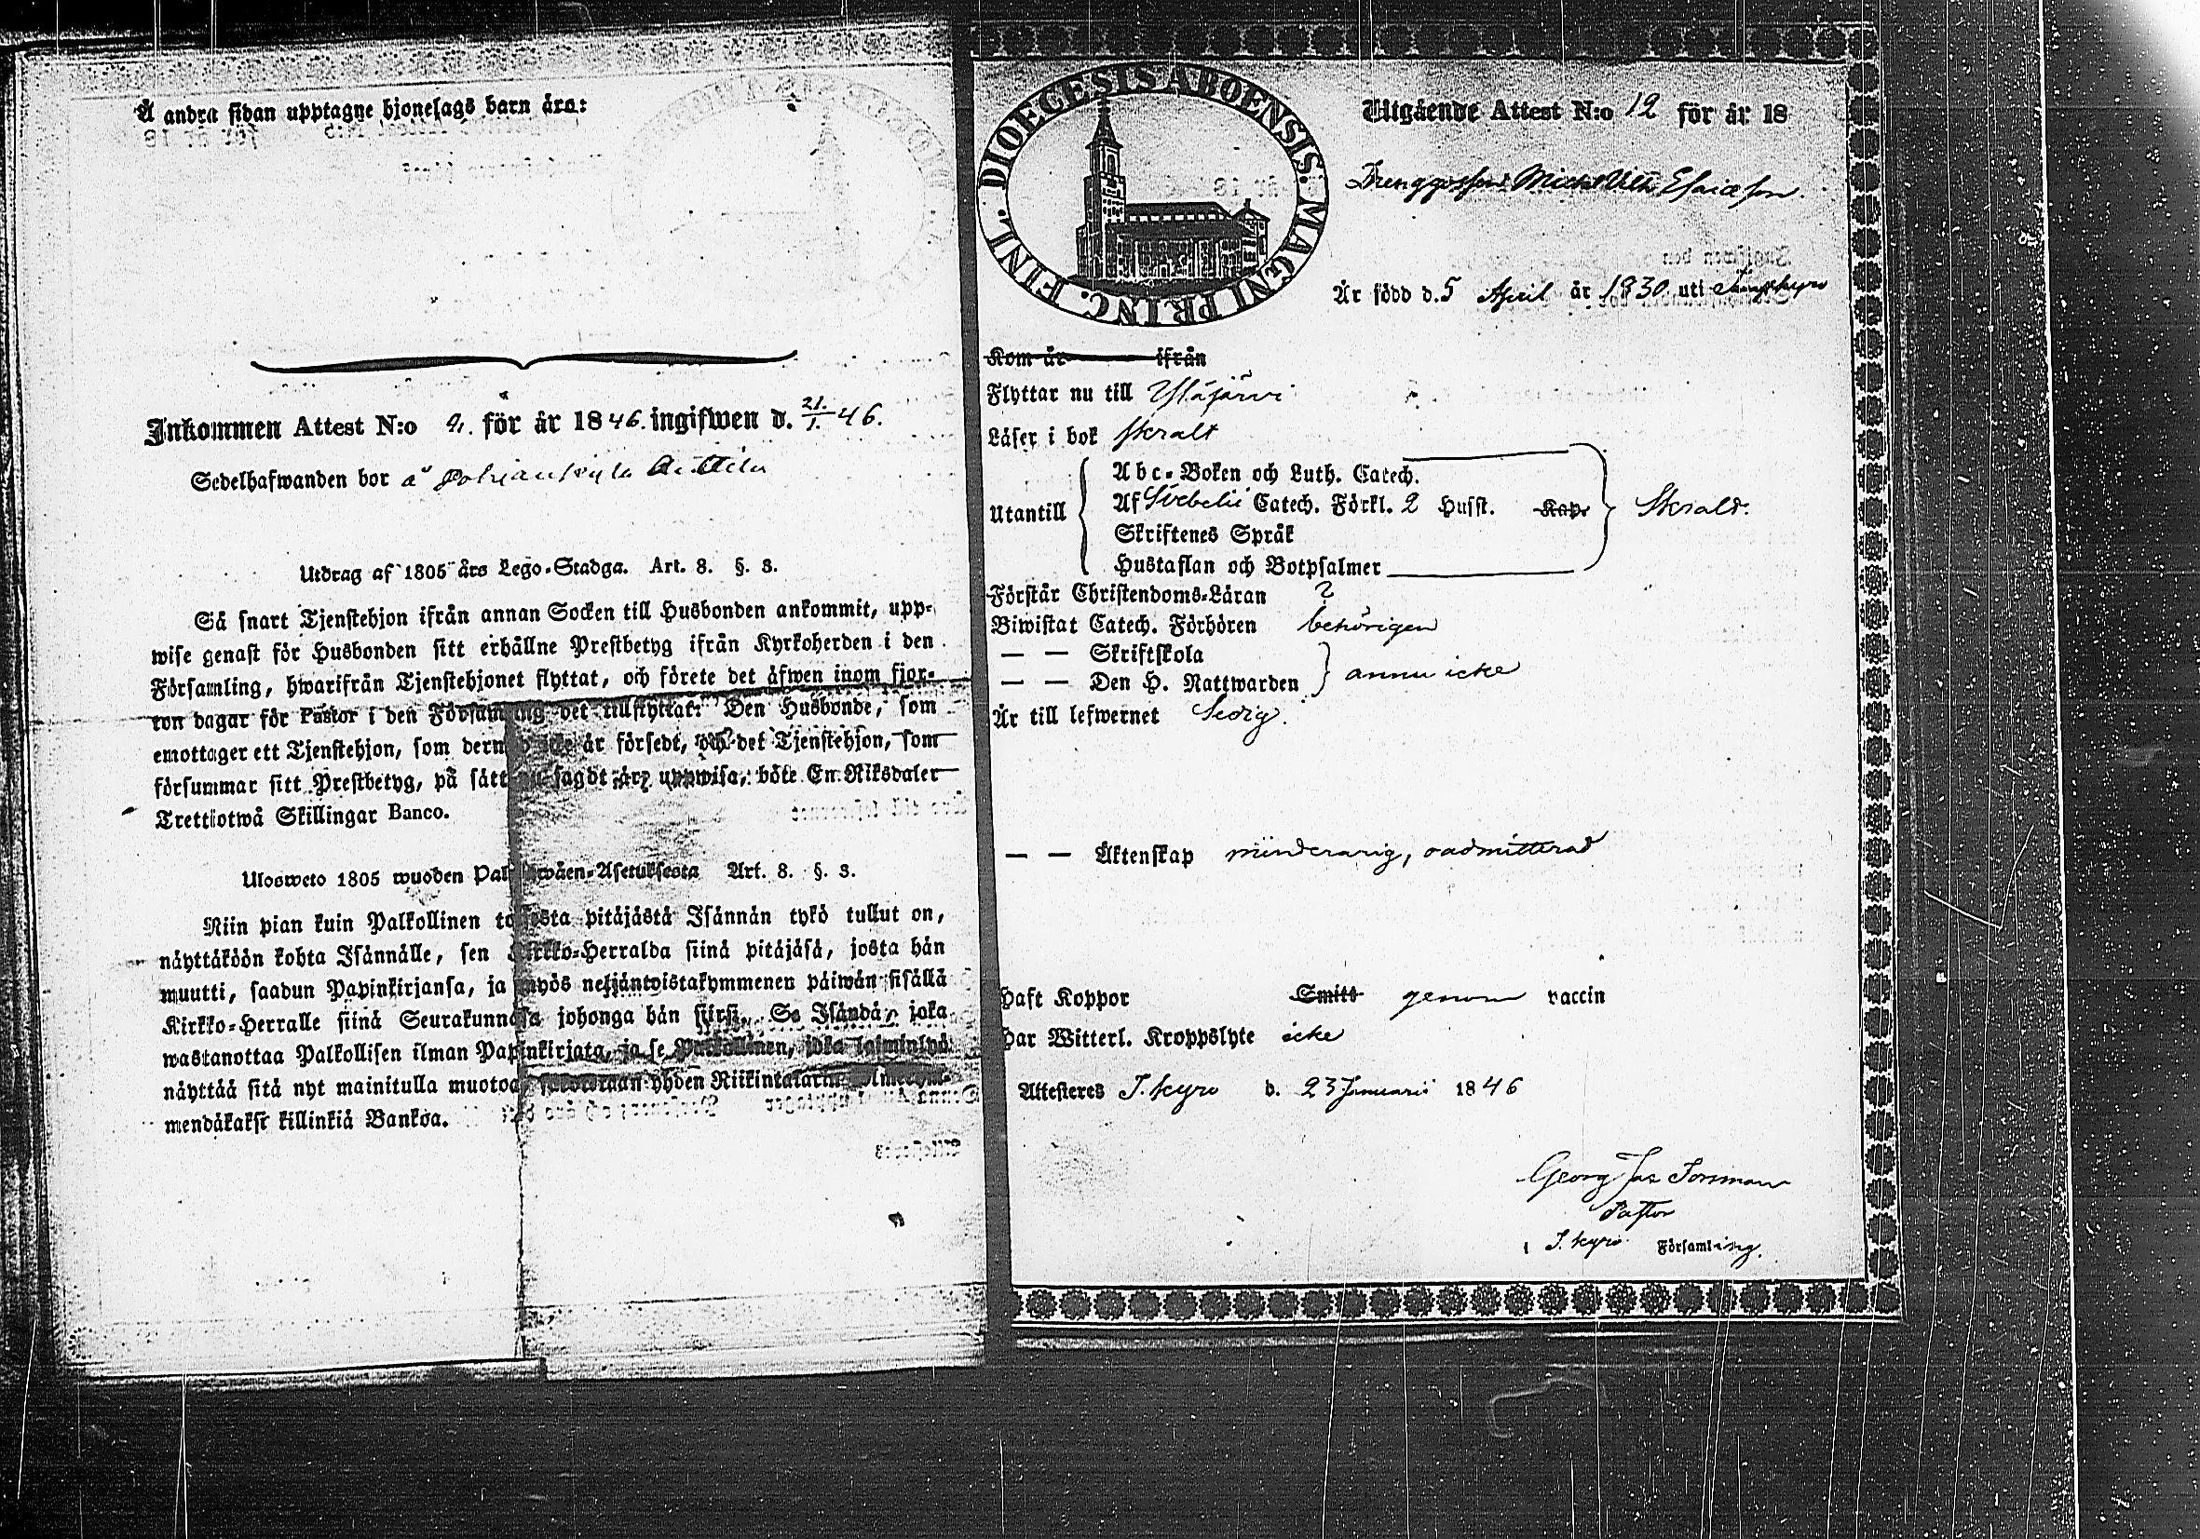 Å andra sidan upptagne hjonelags barn äro:
Inkommen Attest N:o för år 1846. ingifwen d. 21./1. 46.
Sedelhafwanden bor å Pohjankylä
Utdrag af 1805 års Lego-Stadga. Art. 8. §. 3.
Så snart Tjenstehjon ifrån annan Socken till Husbonden ankommit, upp-
wise genast för Husbonden sitt erhållne Prestbetyg ifrån Kyrkoherden i den
Församling, hwarifrån Tjenstehjonet flyttat, och förete det äfwen inom fjor-
ton dagar för Pastor i den Församling det tillflyttat. Den Husbonde, som
emottager ett Tjenstehjon, som är försedt, och det Tjenstehjon, som
försummar sitt Prestbetyg, på sätt nu sagdt är, uppwisa, böte En Riksdaler
Trettiotwå Skillingar Banco.
Ulosweto 1805 wuoden Palkkawäen-Asetuksesta Art. 8. §. 3.
Niin pian kuin Palkollinen toisesta pitäjästä Isännän tykö tullut on,
näyttäköön kohta Isännälle, sen Kirkko-Herralda siinä pitäjäsä, josta hän
muutti, saadun Papinkirjansa, ja myös neljäntoistakymmenen päiwän sisällä
Kirkko-Herralle siinä Seurakunnasa johonga hän siirsi. Se Isändä, joka
wastanottaa Palkollisen ilman Papinkirjata, ja se Palkollinen, joka laiminlyö
näyttää sitä nyt mainitulla muotoa, yhden Riikintalarin kolmekym-
mendäkaksi killinkiä Bankoa.
DIOECESIS ABOENSIS. MAGNI PRINC. FINL.
Utgående Attest N:o 12 för år 18
Drenggossen Michel Esaiasson.
Är född d. 5 April år 1830 uti Tavastkyro
Kom år ifrån
Flyttar nu till Ylöjärvi
Läser i bok skralt
Utantill
Abc-Boken och Luth. Catech.
Af Svebelii Catech. Förkl. 2 Husst. Kap. Skralt.
Skriftenes Språk
Hustaflan och Botpsalmer
Förstår Christendoms-Läran ?
Biwistat Catech. Förhören behörigen
— — Skriftskola
— — Den H. Nattwarden ännu icke
Är till lefwernet Sedig.
— — Äktenskap minderårig, oadmitterad
Haft Koppor Smitt genom vaccin
Har Witterl. Kroppslyte icke
Attesteres T. kyro d. 23 Januarii 1846
Georg Jac Forsman
Pastor
i T. kyro Församling.